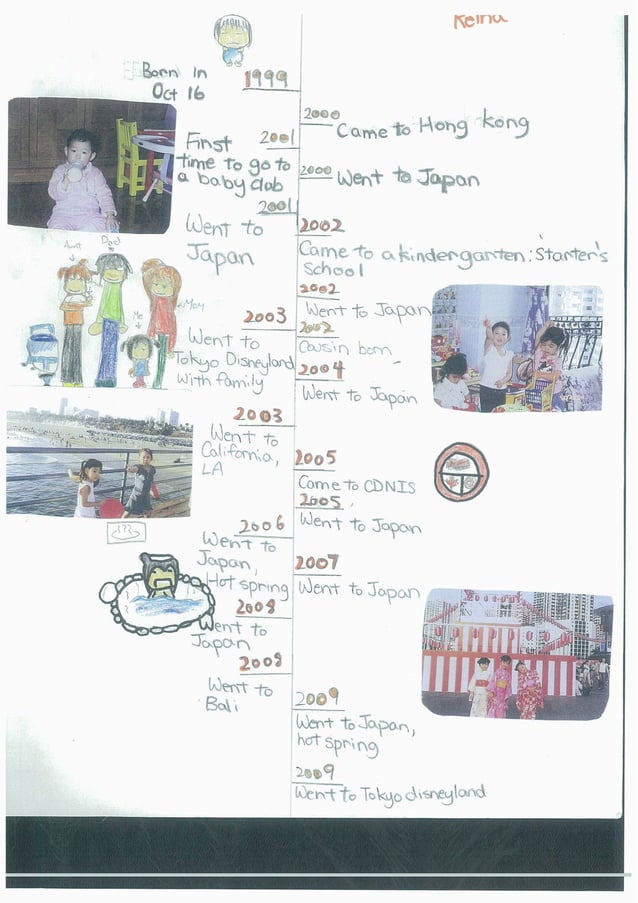 Keina
Born in
Oct 16
1999
2000
Came to Hong kong
First
time to go to
a baby club
2001
2000
Went to Japan
2001
Went to
Japan
2002
Came to a kindergarten: Starter's
School
Aunt
Dad
Mom
Me
2002
Went to Japan
2003
Went to
Tokyo Disneyland
with family
2002
Cousin born
2004
Went to Japan
2003
Went to
California,
LA
2005
Came to CDNIS
2005
Went to Japan
2006
Went to
Japan,
Hot spring
2007
Went to Japan
2008
Went to
Japan
2008
Went to
Bali
2009
Went to Japan,
hot spring
2009
Went to Tokyo disneyland